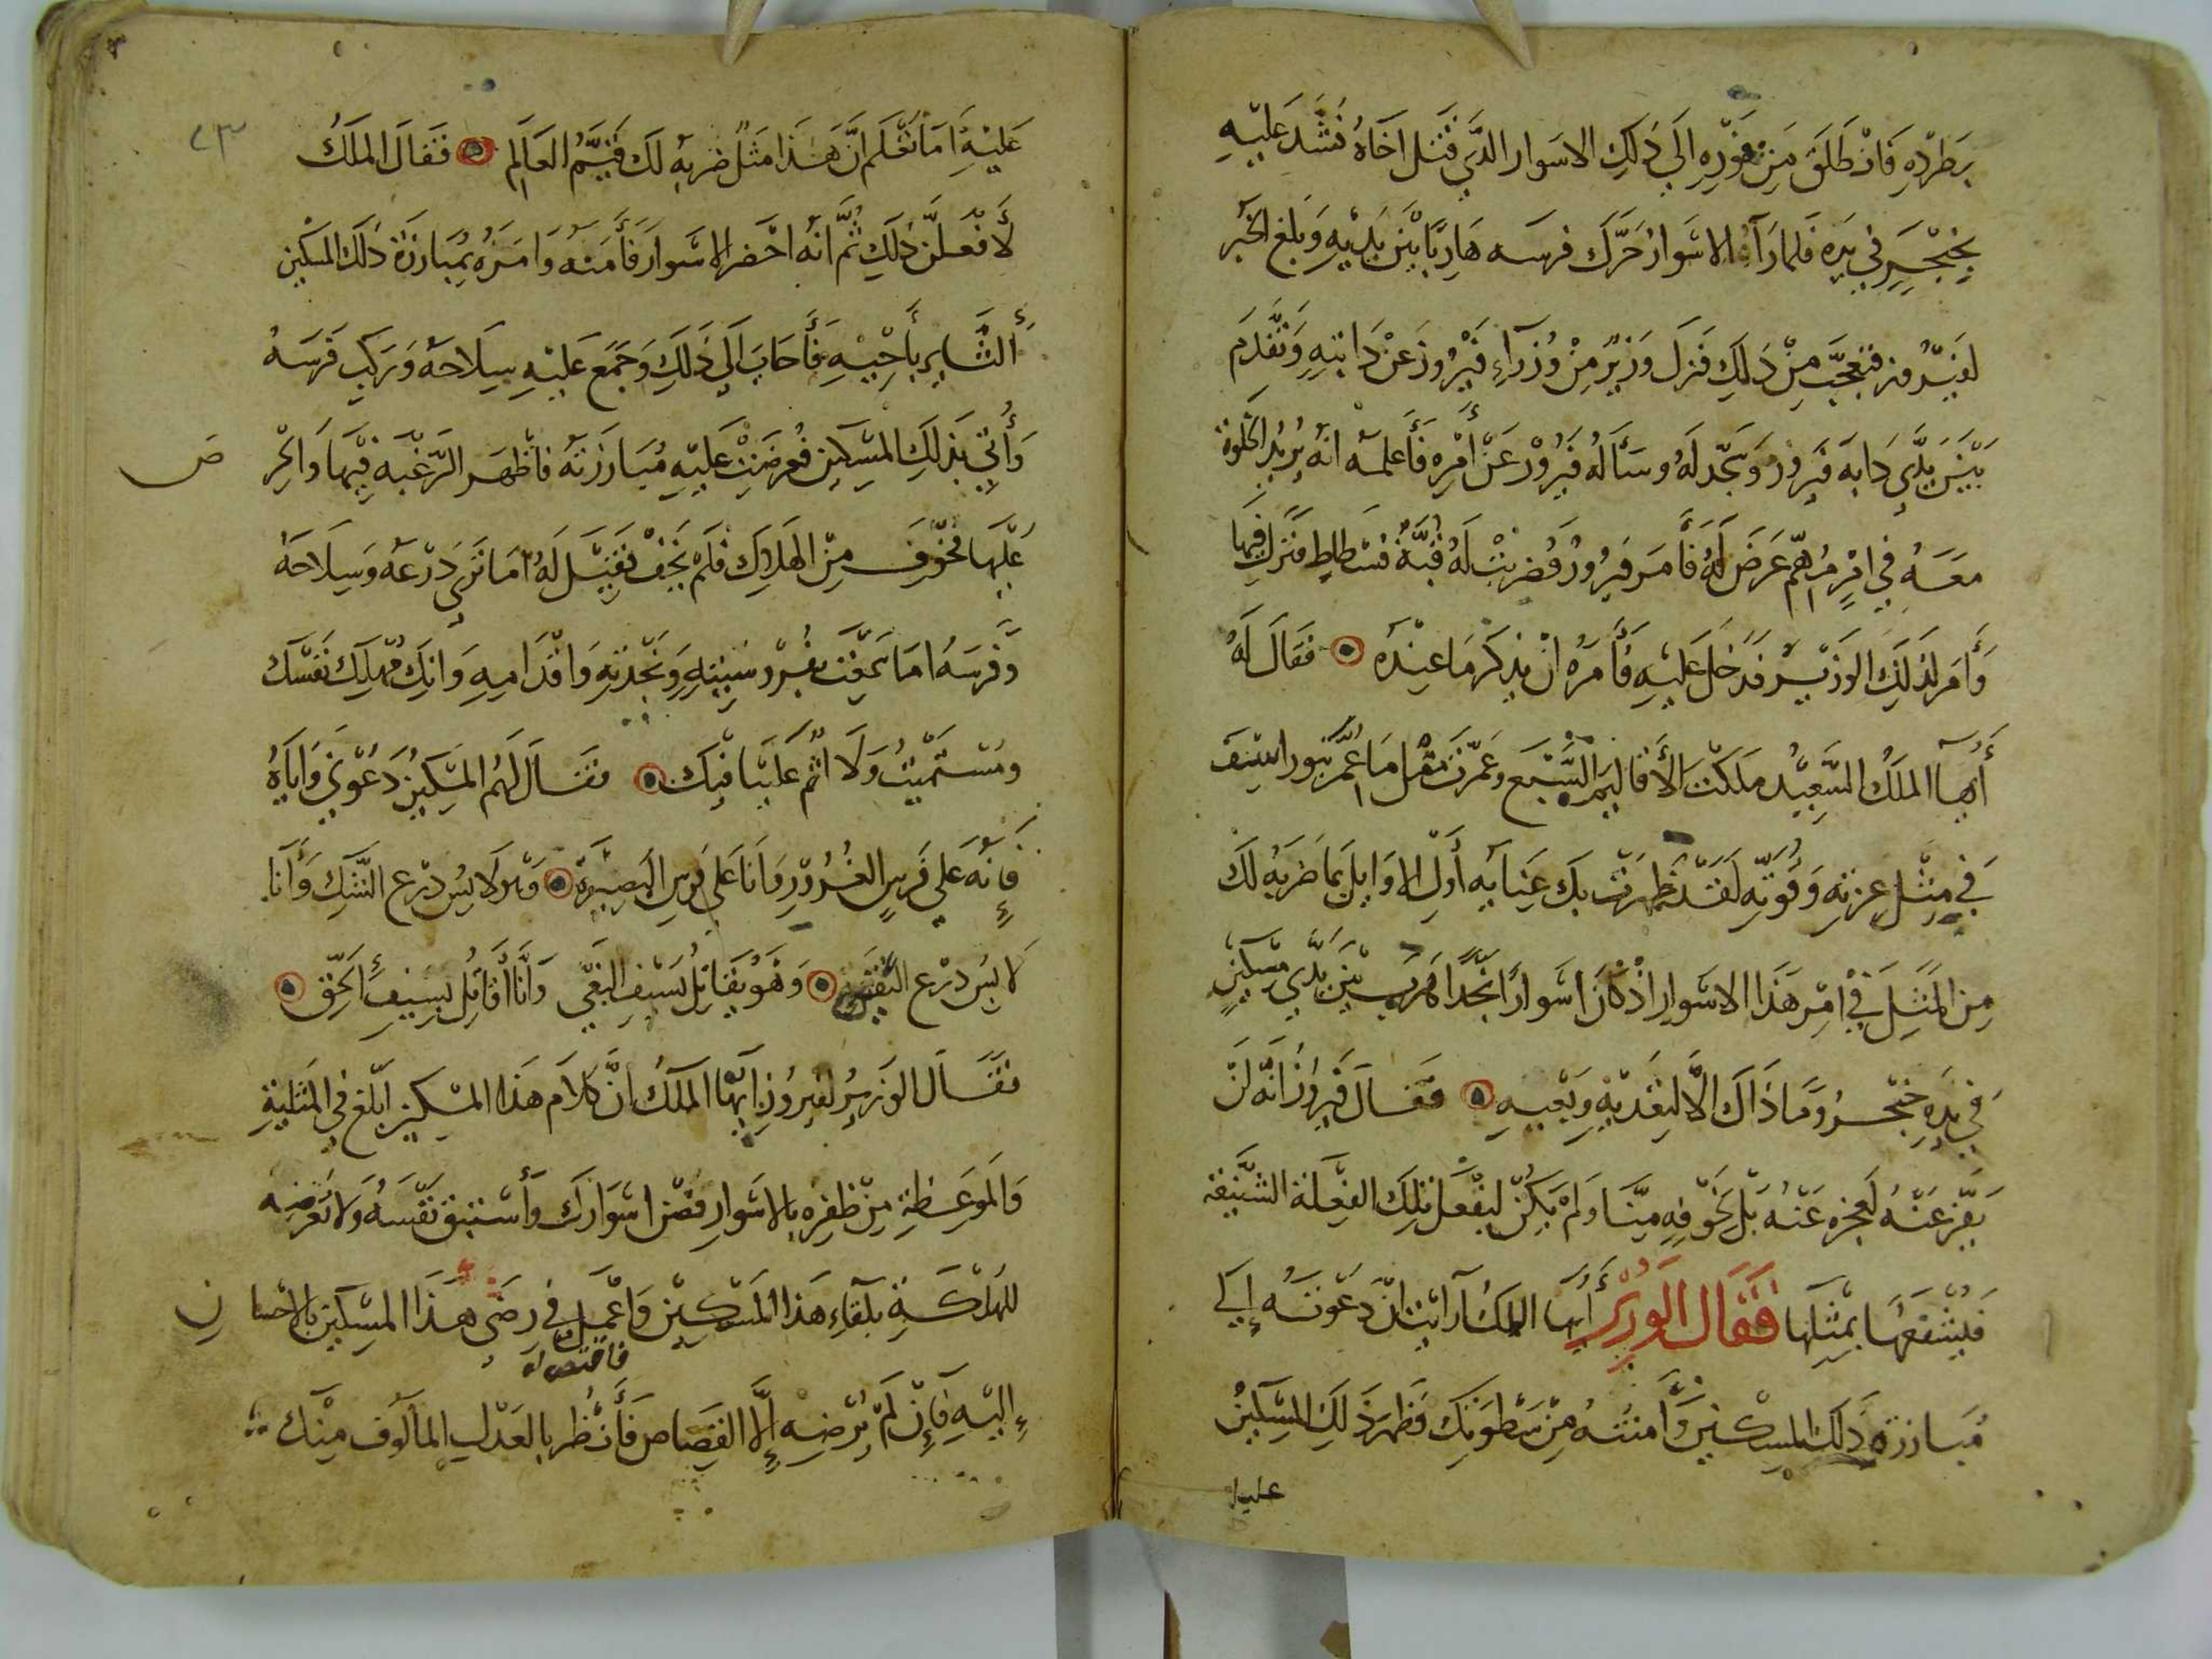 بطرده فانطلق من فوره الي ذلك الاسوار الذي قتل اخاه فشد عليه
بخنجر في يده فلما رآه الاسوار حرك فرسه هاربا بين يديه وبلغ الخبر
لفيروز فتعجب من ذلك فنزل وزير من وزرآء فيروز عن دابته وتقدم
بين يدي دابة فيروز وسجد له وسأله فيروز عن أمره فأعلمه انه يريد الخلوة
معه في امر مهم عرض له فأمر فيروز فضربت له قبة فسطاط فنزل فيها
وأمر لذلك الوزير فدخل عليه فأمره ان يذكر ما عنده فقال له
أيها الملك السعيد ملكت الأقاليم السبع وعمرت مثل ما عمر بيوراسف
في مثل عزته وقوته لقد ظهرت بك عناية أول الاوايل بما ضربه لك
من المثل في امر هذا الاسوار اذ كان اسوارا نجدا هرب بين يدي مسكين
في يده خنجر وما ذاك الا لتعديه وبغيه فقال فيروز انه لن
يفر عنه لعجزه عنه بل لخوفه منا ولم يكن ليفعل تلك الفعلة الشنيعة
فيشفعها بمثلها فقال الوزير أيها الملك أرايت ان دعوته إلي
مبارزة ذلك المسكين وأمنته من سطوتك فظهر ذلك المسكين
عليه
٨٣
عليه أما تعلم ان هذا مثل ضربه لك قيم العالم فقال الملك
لأفعلن ذلك ثم انه احضر الاسوار فأمنه وامره بمبارزة ذلك المسكين
الثاير بأخيه فأجاب الي ذلك وجمع عليه سلاحه وركب فرسه
وأتي بذلك المسكين فعرضت عليه مبارزته فاظهر الرغبة فيها والحر ص
عليها فخوف من الهلاك فلم يخف فقيل له أما تري درعه وسلاحه
وفرسه اما سمعت بفروسيته ونجدته واقدامه وانك مهلك نفسك
ومستميت ولا اثم علينا فيك فقال لهم المسكين دعوني واياه
فإنه علي فرس الغرور وانا علي فرس البصيرة وهو لابس درع الشك وأنا
لابس درع اليقين وهو يقاتل بسيف البغي وانا أقاتل بسيف الحق
فقال الوزير لفيروز ايها الملك ان كلام هذا المسكين ابلغ في المثلية
والموعظة من ظفره بالاسوار فصن اسوارك وأستبق نفسه ولا تعرضه
للهلكة بلقاء هذا المسكين واعمل في رضى هذا المسكين بالاحسا ن
إليه فإن لم يرضه إلا القصاص فأنظر بالعدل المألوف منك